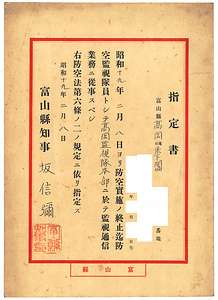 指定書
富山縣高岡市
番地
昭和十九年二月八日ヨリ防空實施ノ終止迄防
空監視隊員トシテ高岡監視隊本部ニ於テ監視通信
業務ニ從事スベシ
右防空法第六條ノ二ノ規定ニ依リ指定ス
昭和十九年二月八日
富山縣知事 坂信彌
富山縣